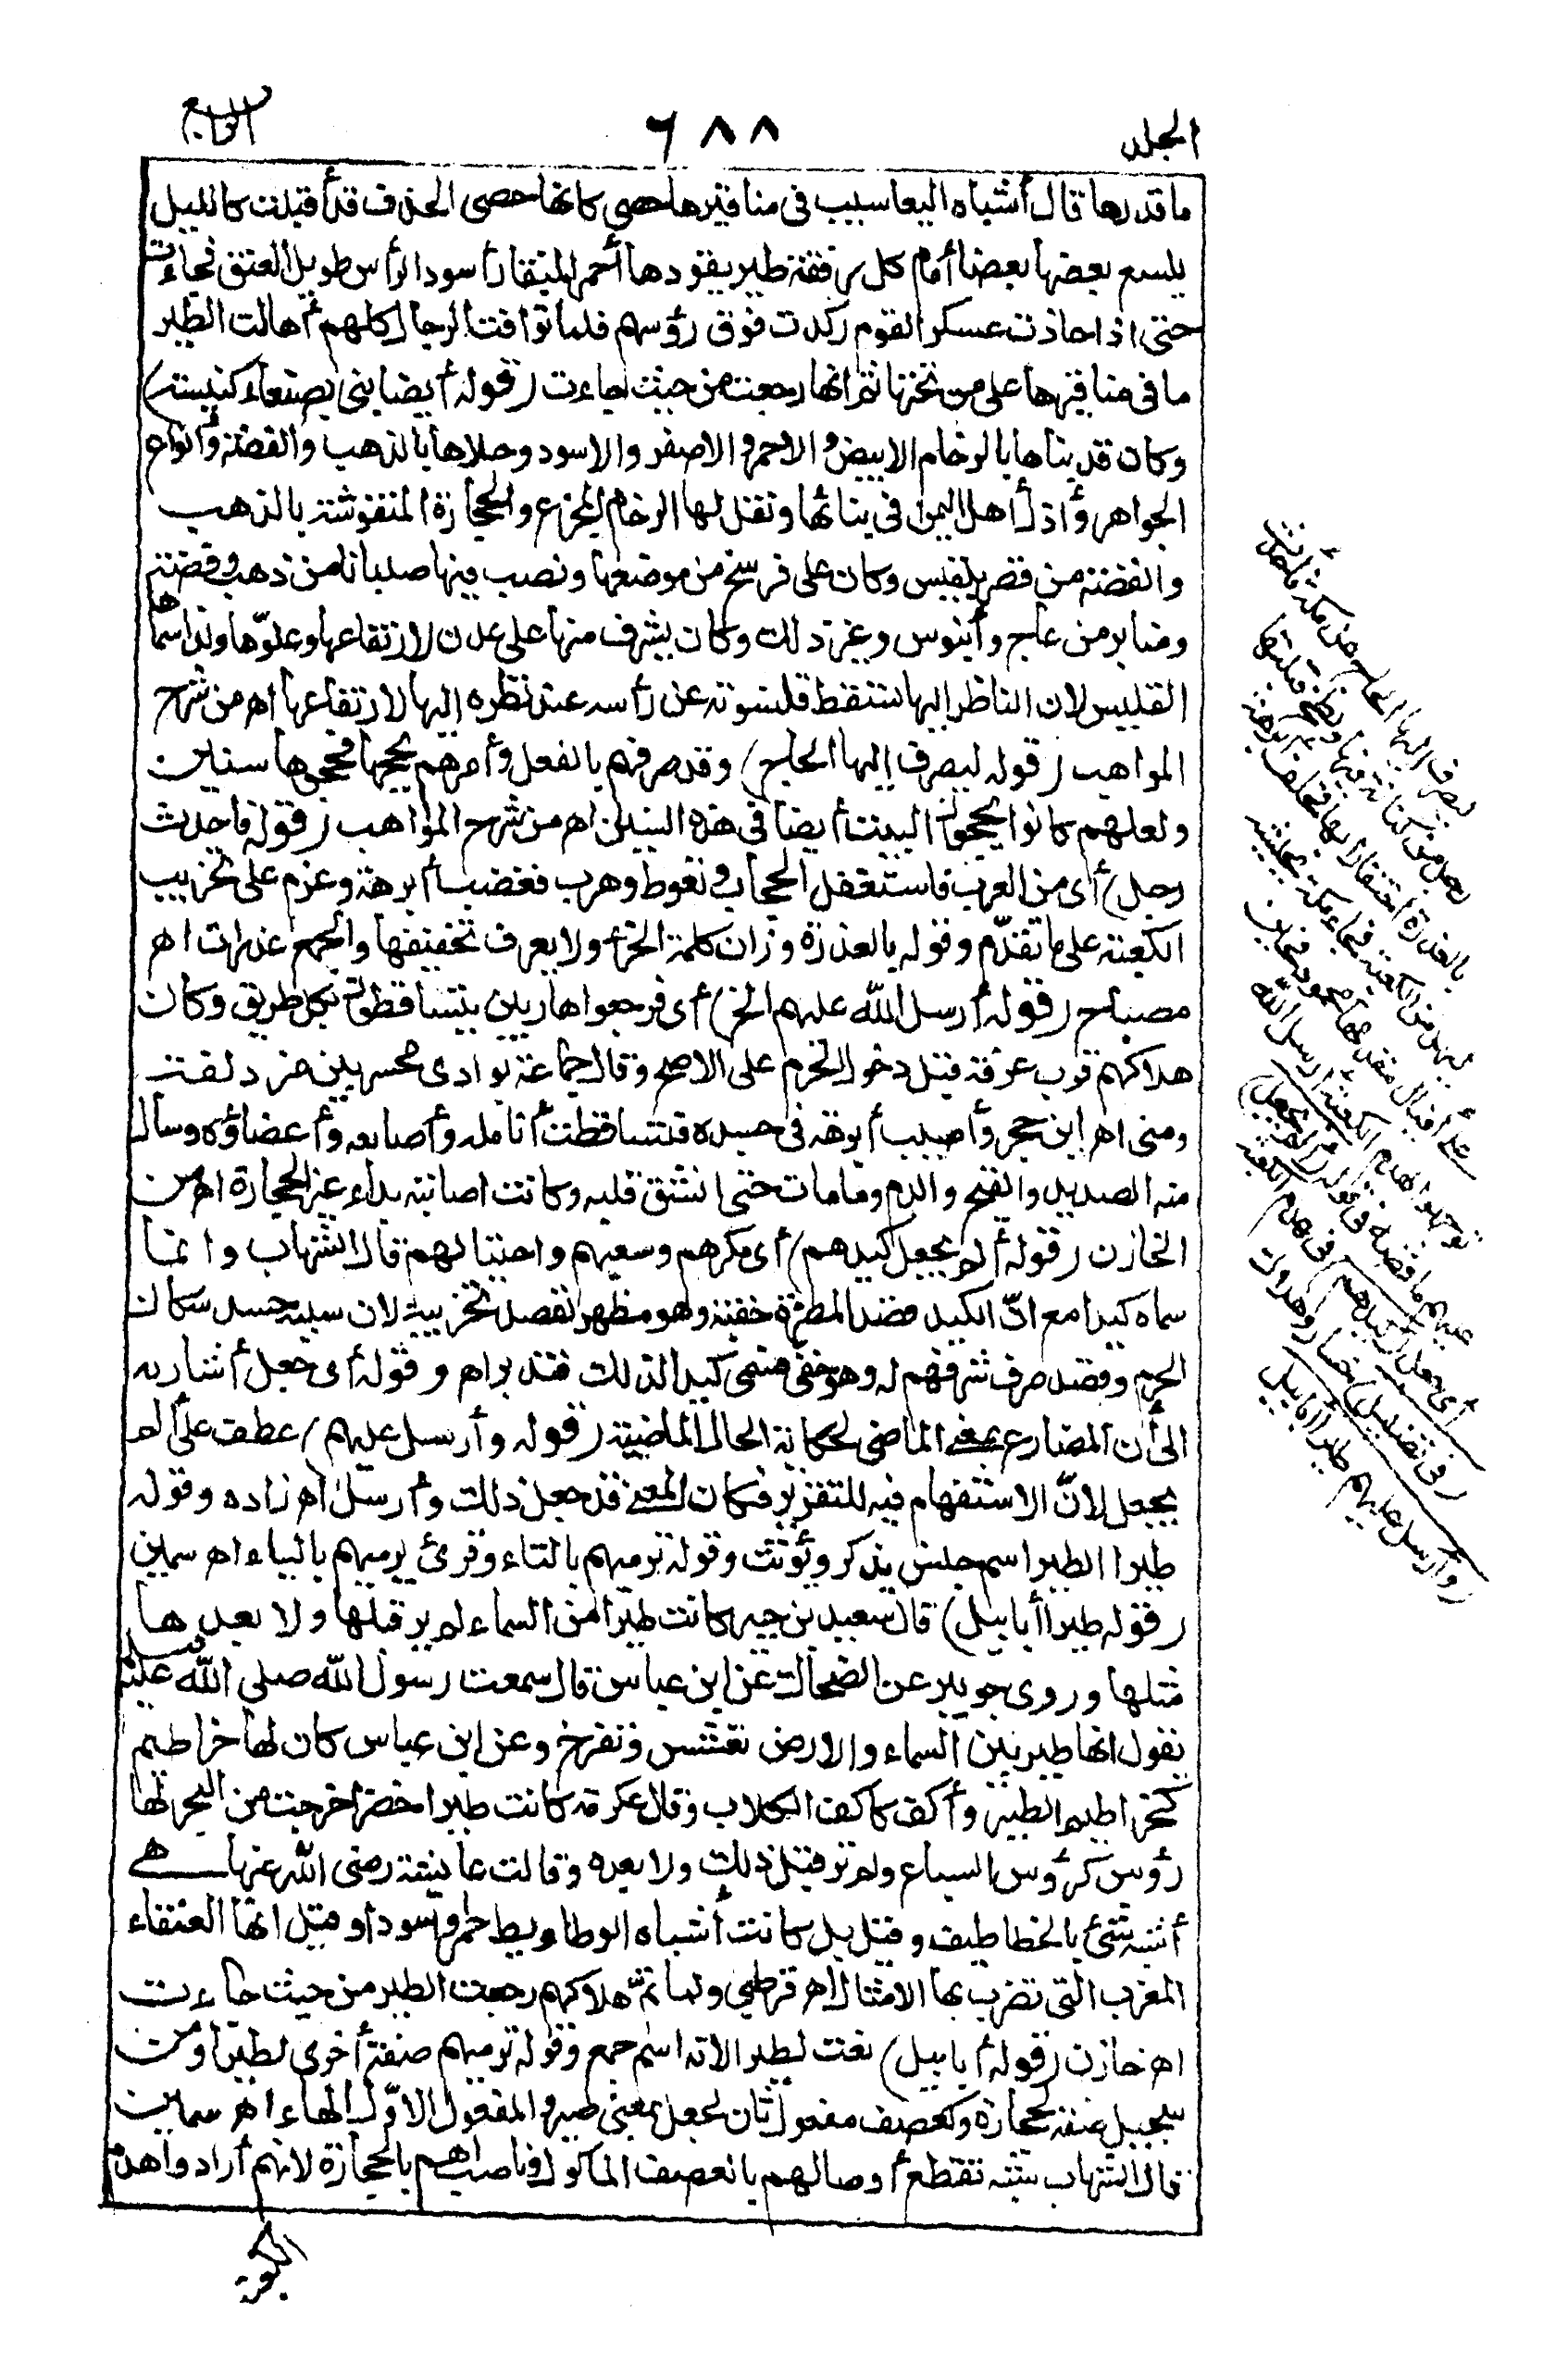 الجلد ٦٨٨ الرابع
ما قدرها قال أشباه اليعاسيب في مناقيرها حصى كانها حصى الخذف قد أقبلت كالليل
يسع بعضها بعضا أمام كل رفقة طير يقودها أحمر المنقار أسود الرأس طويل العنق فجاءت
حتى اذا حاذت عسكر القوم ركدت فوق رؤسهم فلما توافت الرجال كلهم أهالت الطير
ما في مناقيرها على من تحتها ثم انها رجعت من حيث جاءت (قوله أيضا بنى بصنعاء كنيسة)
وكان قد بناها بالرخام الابيض والاحمر والاصفر والاسود وحلاها بالذهب والفضة وأنواع
الجواهر وأذل أهل اليمن في بنائها ونقل لها الرخام المجزع والحجارة المنقوشة بالذهب
والفضة من قصر بلقيس وكان على فرسخ من موضعها ونصب فيها صلبانا من ذهب وفضة
ومنابر من عاج وأبنوس وغير ذلك وكان يشرف منها على عدن لارتفاعها وعلوّها ولذا سماها
القليس لان الناظر اليها تسقط قلنسوته عن رأسه عند نظره إليها لارتفاعها اهـ من شرح
المواهب (قوله ليصرف إليها الحاج) وقد صرفهم بالفعل وأمرهم بحجها فحجوها سنين
ولعلهم كانوا يحجون البيت أيضا في هذه السنين اهـ من شرح المواهب (قوله فأحدث
رجل) أى من العرب فاستغفل الحجاب وتغوط وهرب فغضب أبرهة وعزم على تخريب
الكعبة على ما تقدّم وقوله بالعذرة وزان كلمة الخرء ولا يعرف تخفيفها والجمع عذرات اهـ
مصباح (قوله أرسل الله عليهم الخ) أى فرجعوا هاربين يتساقطون بكل طريق وكان
هلاكهم قرب عرفة قبل دخول الحرم على الاصح وقال جماعة بوادى محسر بين مزدلفة
ومنى اهـ ابن حجر وأصيب أبرهة في جسده فتساقطت أنامله وأصابعه وأعضاؤه وسال
منه الصديد والقيح والدم وما مات حتى انشق قلبه وكانت اصابته بداء غير الحجارة اهـ من
الخازن (قوله ألم يجعل كيدهم) أى مكرهم وسعيهم واحتيالهم قال الشهاب وانما
سماه كيدا مع انّ الكيد قصد المضرة خفية وهو مظهر لقصد تخريبه لان سببه حسد سكان
الحرم وقصد صرف شرفهم له وهو خفي فسمى كيدا لذلك فتدبر اهـ وقوله أى جعل أشار به
الى أن المضارع بمعنى الماضى لحكاية الحال الماضية (قوله وأرسل عليهم) عطف على ألم
يجعل لانّ الاستفهام فيه للتقرير فكان المعنى قد جعل ذلك وأرسل اهـ زاده وقوله
طيرا الطير اسم جنس يذكر ويؤنث وقوله ترميهم بالتاء وقرئ يرميهم بالياء اهـ سمين
(قوله طيرا أبابيل) قال سعيد بن جبير كانت طيرا من السماء لم ير قبلها ولا بعدها
مثلها وروى جويبر عن الضحاك عن ابن عباس قال سمعت رسول الله صلى الله عليه وسلم
يقول انها طير بين السماء والارض تعشش وتفرخ وعن ابن عباس كان لها خراطيم
كخراطيم الطير وأكف كاكف الكلاب وقال عكرمة كانت طيرا خضرا خرجت من البحر لها
رؤس كرؤس السباع ولم تر قبل ذلك ولا بعده وقالت عائشة رضى الله عنها هى
أشبه شئ بالخطاطيف وقيل بل كانت أشباه الوطاويط حمرا وسودا وقيل انها العنقاء
المغرب التى تضرب بها الامثال اهـ قرطبى ولما تمّ هلاكهم رجعت الطير من حيث جاءت
اهـ خازن (قوله أبابيل) نعت لطيرا لانه اسم جمع وقوله ترميهم صفة أخرى لطيرا ومن
سجيل صفة لحجارة وكعصف مفعول ثان لجعل بمعنى صير والمفعول الاوّل الهاء اهـ سمين
قال الشهاب شبه تقطع أوصالهم بالعصف المأكول وأصيب اهـم بالحجارة لانهم أرادوا هدم
الكعبة
ليصرف إليها الحاج من مكة فأحدث
رجل من كنانة فيها ولطخ قبلتها
بالعذرة احتقارا بها فحلف أبرهة
ليهدمن الكعبة فجاء مكة بجيشه
على أفيال مقدمها محمود فحين
توجهوا لهدم الكعبة أرسل الله
عليهم ما قصه في قوله (ألم يجعل)
أى جعل (كيدهم) في هدم الكعبة
(في تضليل) خسار وهلاك
(وأرسل عليهم طيرا أبابيل)